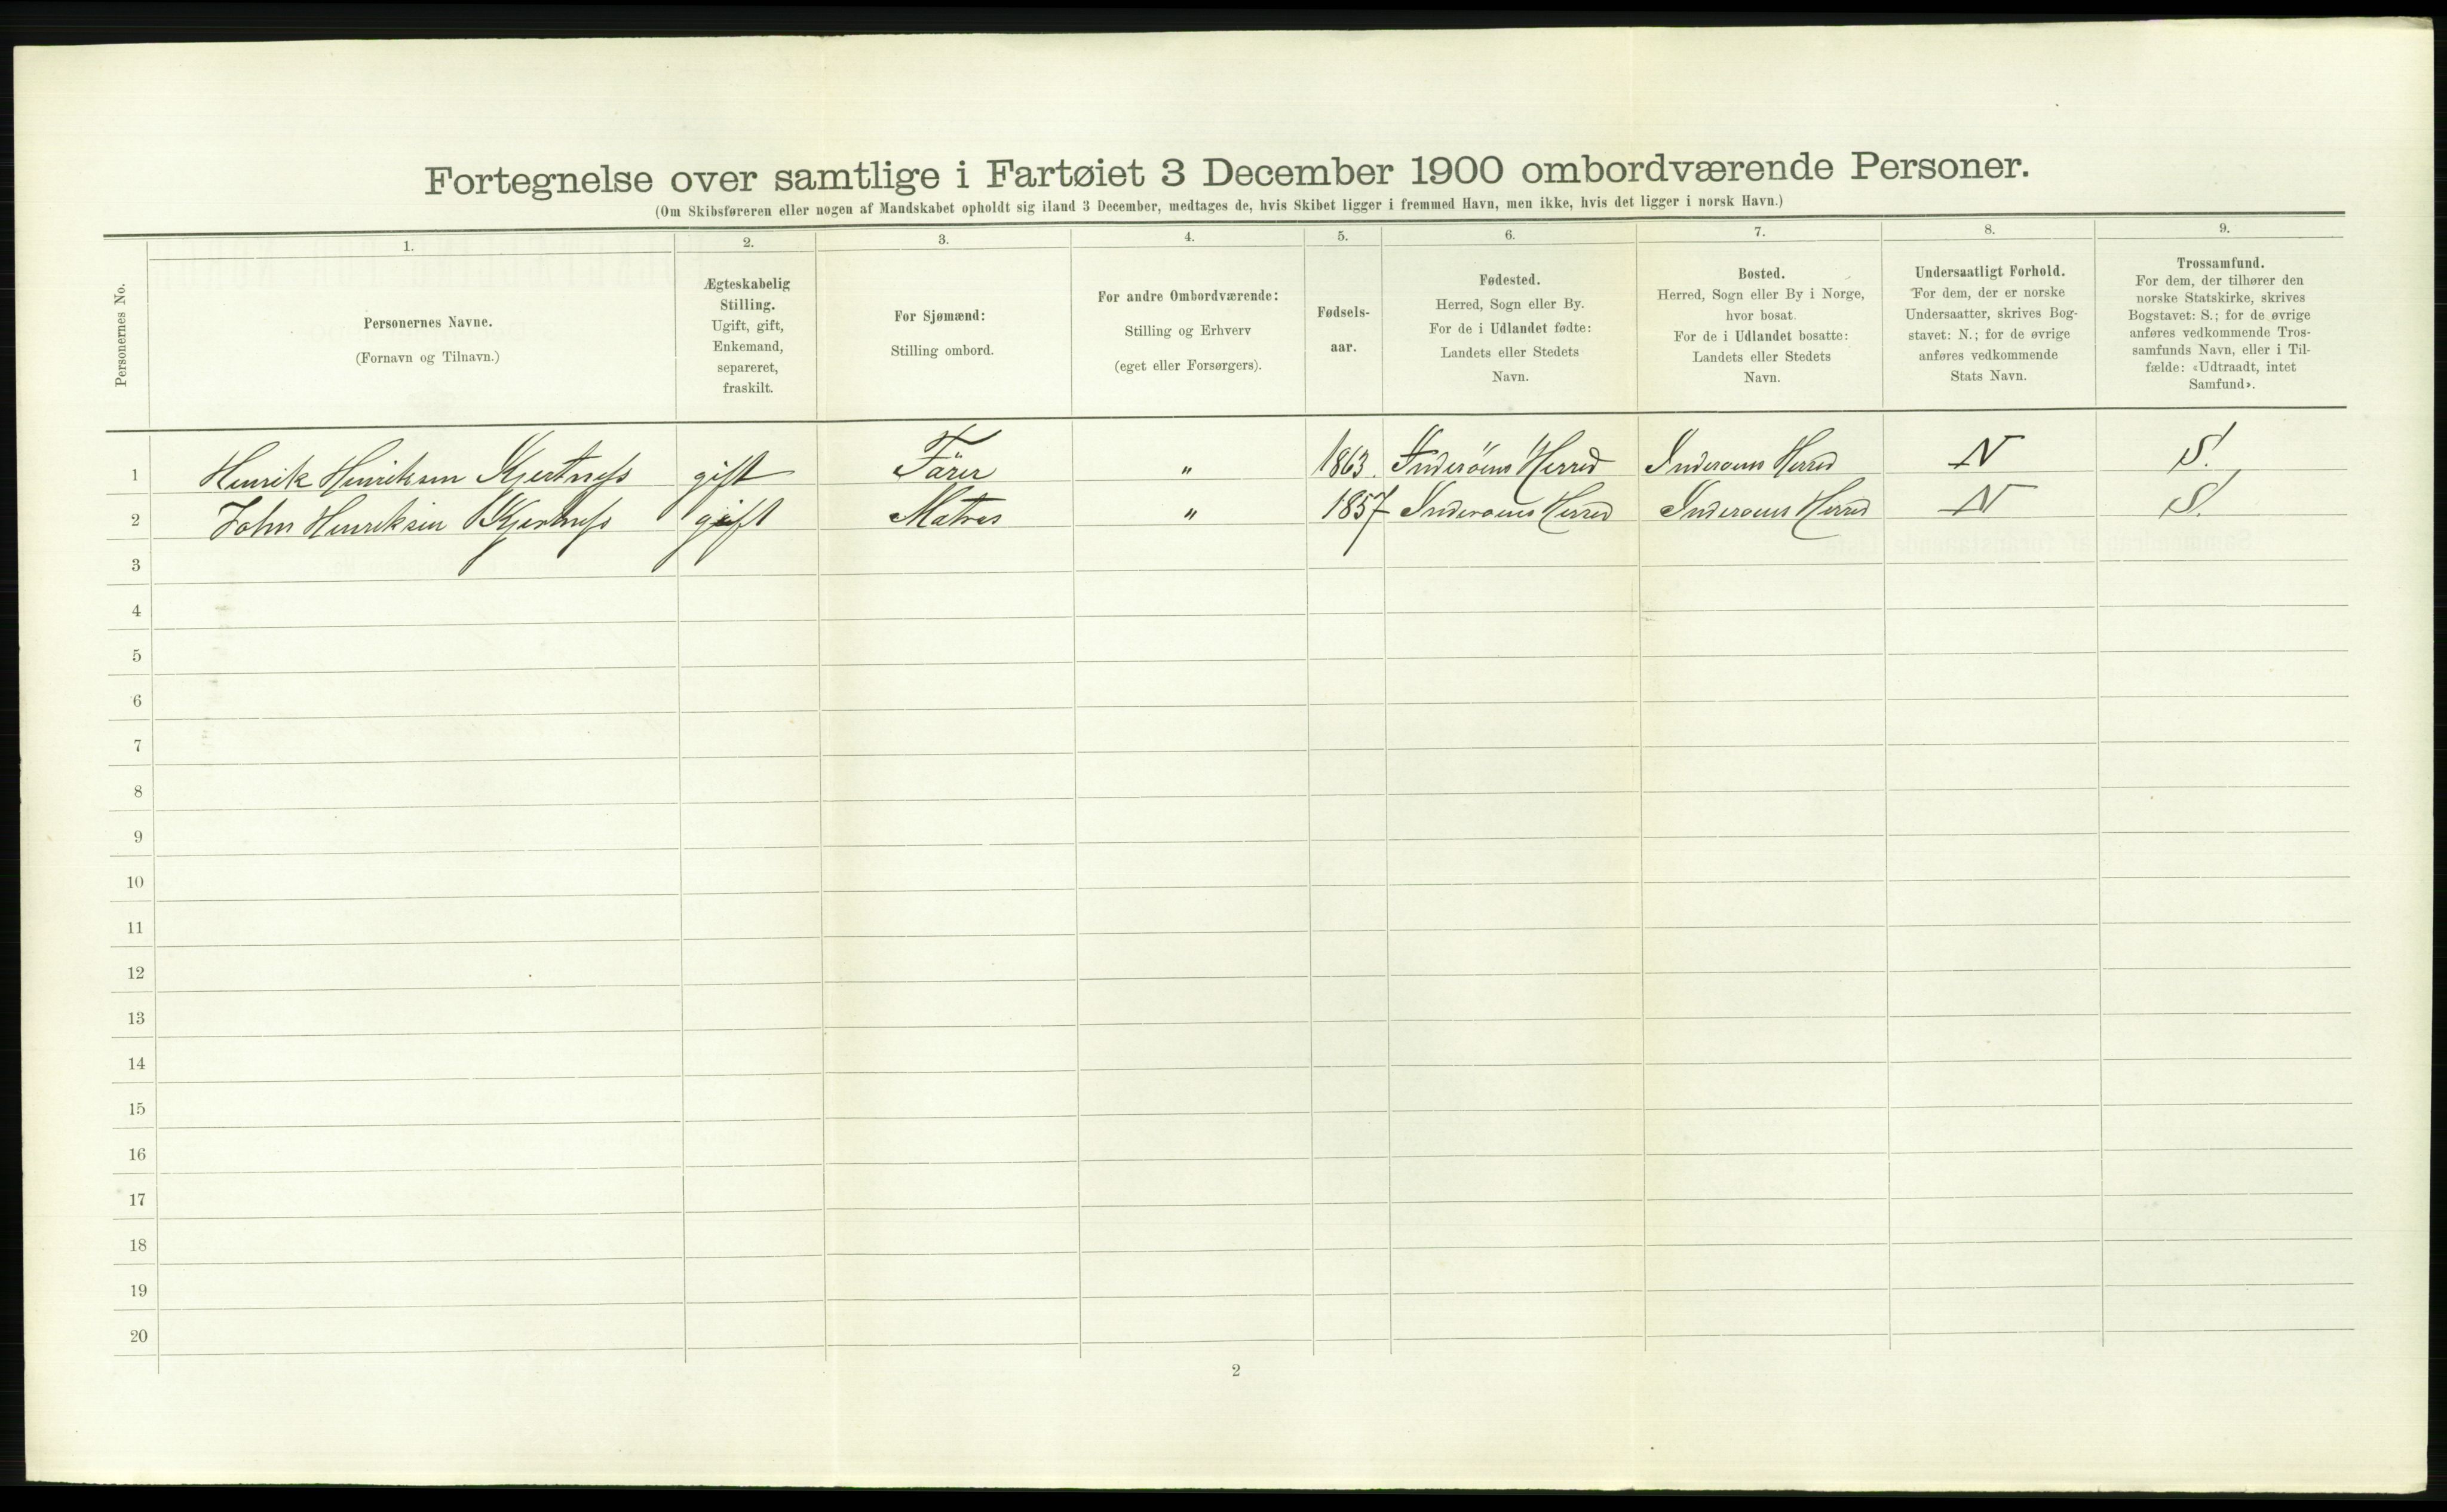 Fortegnelse over samtlige i Fartøiet 3 December 1900 ombordværende Personer.
(Om Skibsføreren eller nogen af Mandskabet opholdt sig iland 3 December, medtages de, hvis Skibet ligger i fremmed Havn, men ikke, hvis det ligger i norsk Havn.)
Personernes No.
1.
Personernes Navne.
(Fornavn og Tilnavn.)
2.
Ægteskabelig
Stilling.
Ugift, gift,
Enkemand,
separeret,
fraskilt.
3.
For Sjømænd:
Stilling ombord.
4.
For andre Ombordværende:
Stilling og Erhverv
(eget eller Forsørgers).
5.
Fødsels-
aar.
6.
Fødested.
Herred, Sogn eller By.
For de i Udlandet fødte:
Landets eller Stedets
Navn.
7.
Bosted.
Herred, Sogn eller By i Norge,
hvor bosat.
For de i Udlandet bosatte:
Landets eller Stedets
Navn.
8.
Undersaatligt Forhold.
For dem, der er norske
Undersaatter, skrives Bog-
stavet: N.; for de øvrige
anføres vedkommende
Stats Navn.
9.
Trossamfund.
For dem, der tilhører den
norske Statskirke, skrives
Bogstavet: S.; for de øvrige
anføres vedkommende Tros-
samfunds Navn, eller i Til-
fælde: «Udtraadt, intet
Samfund».
1 Henrik Henriksen Kjertness gift Förer " 1863. Inderöens Herred Inderoens Herred N S.
2 John Henriksen Kjertness gift Matros " 1857 Inderoens Herred Inderoens Herred N S.
3
4
5
6
7
8
9
10
11
12
13
14
15
16
17
18
19
20
2